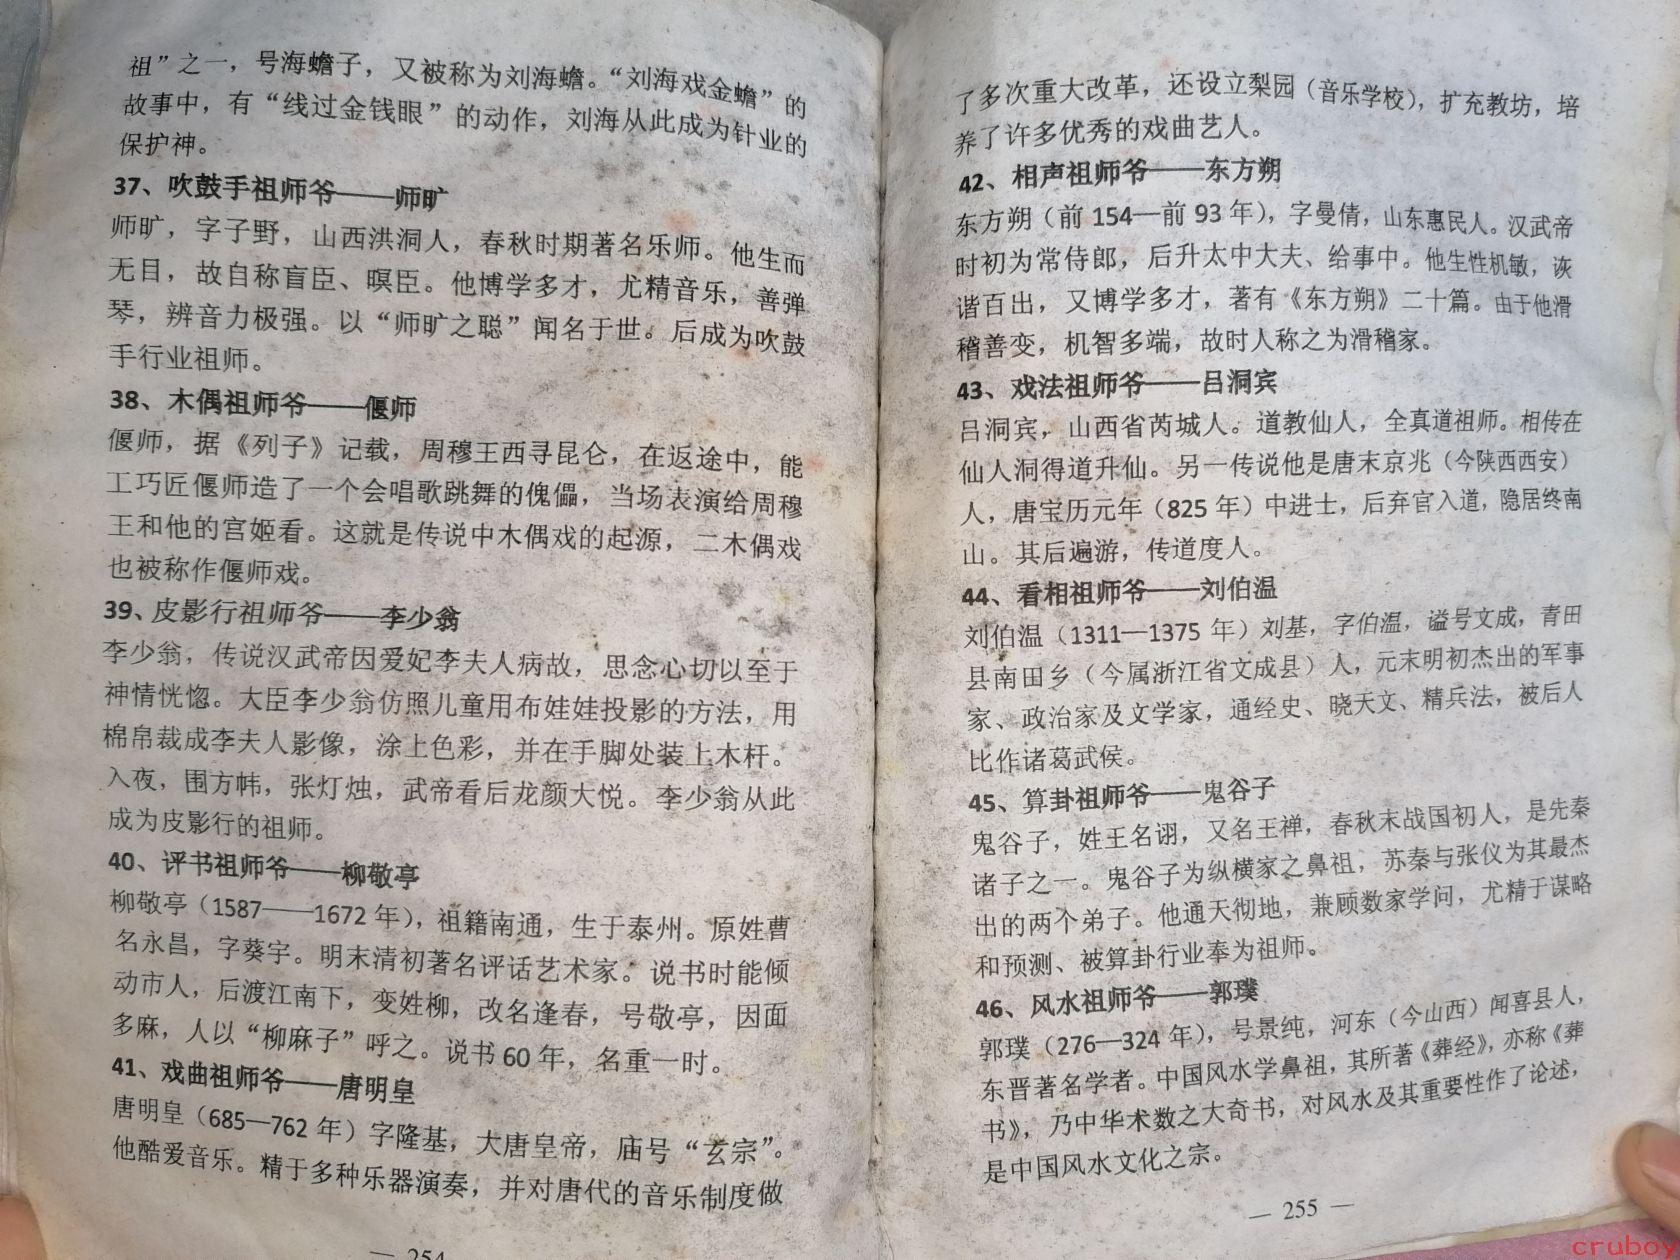 祖”之一，号海蟾子，又被称为刘海蟾。“刘海戏金蟾”的
故事中，有“线过金钱眼”的动作，刘海从此成为针业的
保护神。
37、吹鼓手祖师爷——师旷
师旷，字子野，山西洪洞人，春秋时期著名乐师。他生而
无目，故自称盲臣、瞑臣。他博学多才，尤精音乐，善弹
琴，辨音力极强。以“师旷之聪”闻名于世。后成为吹鼓
手行业祖师。
38、木偶祖师爷——偃师
偃师，据《列子》记载，周穆王西寻昆仑，在返途中，能
工巧匠偃师造了一个会唱歌跳舞的傀儡，当场表演给周穆
王和他的宫姬看。这就是传说中木偶戏的起源，二木偶戏
也被称作偃师戏。
39、皮影行祖师爷——李少翁
李少翁，传说汉武帝因爱妃李夫人病故，思念心切以至于
神情恍惚。大臣李少翁仿照儿童用布娃娃投影的方法，用
棉帛裁成李夫人影像，涂上色彩，并在手脚处装上木杆。
入夜，围方帏，张灯烛，武帝看后龙颜大悦。李少翁从此
成为皮影行的祖师。
40、评书祖师爷——柳敬亭
柳敬亭（1587——1672年），祖籍南通，生于泰州。原姓曹
名永昌，字葵宇。明末清初著名评话艺术家。说书时能倾
动市人，后渡江南下，变姓柳，改名逢春，号敬亭，因面
多麻，人以“柳麻子”呼之。说书60年，名重一时。
41、戏曲祖师爷——唐明皇
唐明皇（685—762年）字隆基，大唐皇帝，庙号“玄宗”。
他酷爱音乐。精于多种乐器演奏，并对唐代的音乐制度做
— 254
了多次重大改革，还设立梨园（音乐学校），扩充教坊，培
养了许多优秀的戏曲艺人。
42、相声祖师爷——东方朔
东方朔（前154—前93年），字曼倩，山东惠民人。汉武帝
时初为常侍郎，后升太中大夫、给事中。他生性机敏，诙
谐百出，又博学多才，著有《东方朔》二十篇。由于他滑
稽善变，机智多端，故时人称之为滑稽家。
43、戏法祖师爷——吕洞宾
吕洞宾，山西省芮城人。道教仙人，全真道祖师。相传在
仙人洞得道升仙。另一传说他是唐末京兆（今陕西西安）
人，唐宝历元年（825年）中进士，后弃官入道，隐居终南
山。其后遍游，传道度人。
44、看相祖师爷——刘伯温
刘伯温（1311—1375年）刘基，字伯温，谥号文成，青田
县南田乡（今属浙江省文成县）人，元末明初杰出的军事
家、政治家及文学家，通经史、晓天文、精兵法，被后人
比作诸葛武侯。
45、算卦祖师爷——鬼谷子
鬼谷子，姓王名诩，又名王禅，春秋末战国初人，是先秦
诸子之一。鬼谷子为纵横家之鼻祖，苏秦与张仪为其最杰
出的两个弟子。他通天彻地，兼顾数家学问，尤精于谋略
和预测、被算卦行业奉为祖师。
46、风水祖师爷——郭璞
郭璞（276—324年），号景纯，河东（今山西）闻喜县人，
东晋著名学者。中国风水学鼻祖，其所著《葬经》，亦称《葬
书》，乃中华术数之大奇书，对风水及其重要性作了论述，
是中国风水文化之宗。
— 255 —
cruboy